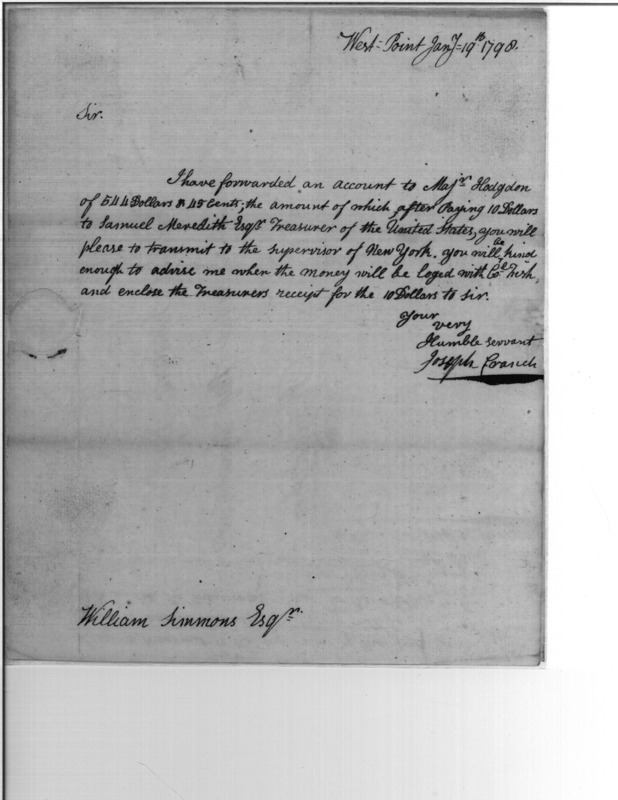 West-Point Jany 19th 1798.
Sir.
I have forwarded an account to Majr. Hodgdon
of 544 Dollars & 45 Cents; the amount of which after Paying 10 Dollars
to Samuel Meredith Esqr. Treasurer of the United States, you will
please to transmit to the supervisor of New York. you will be kind
enough to advise me when the money will be loged with Col Fish,
and enclose the Treasurers receipt for the 10 Dollars to sir.
Your
very
Humble servant
Joseph Cranch
William Simmons Esqr.